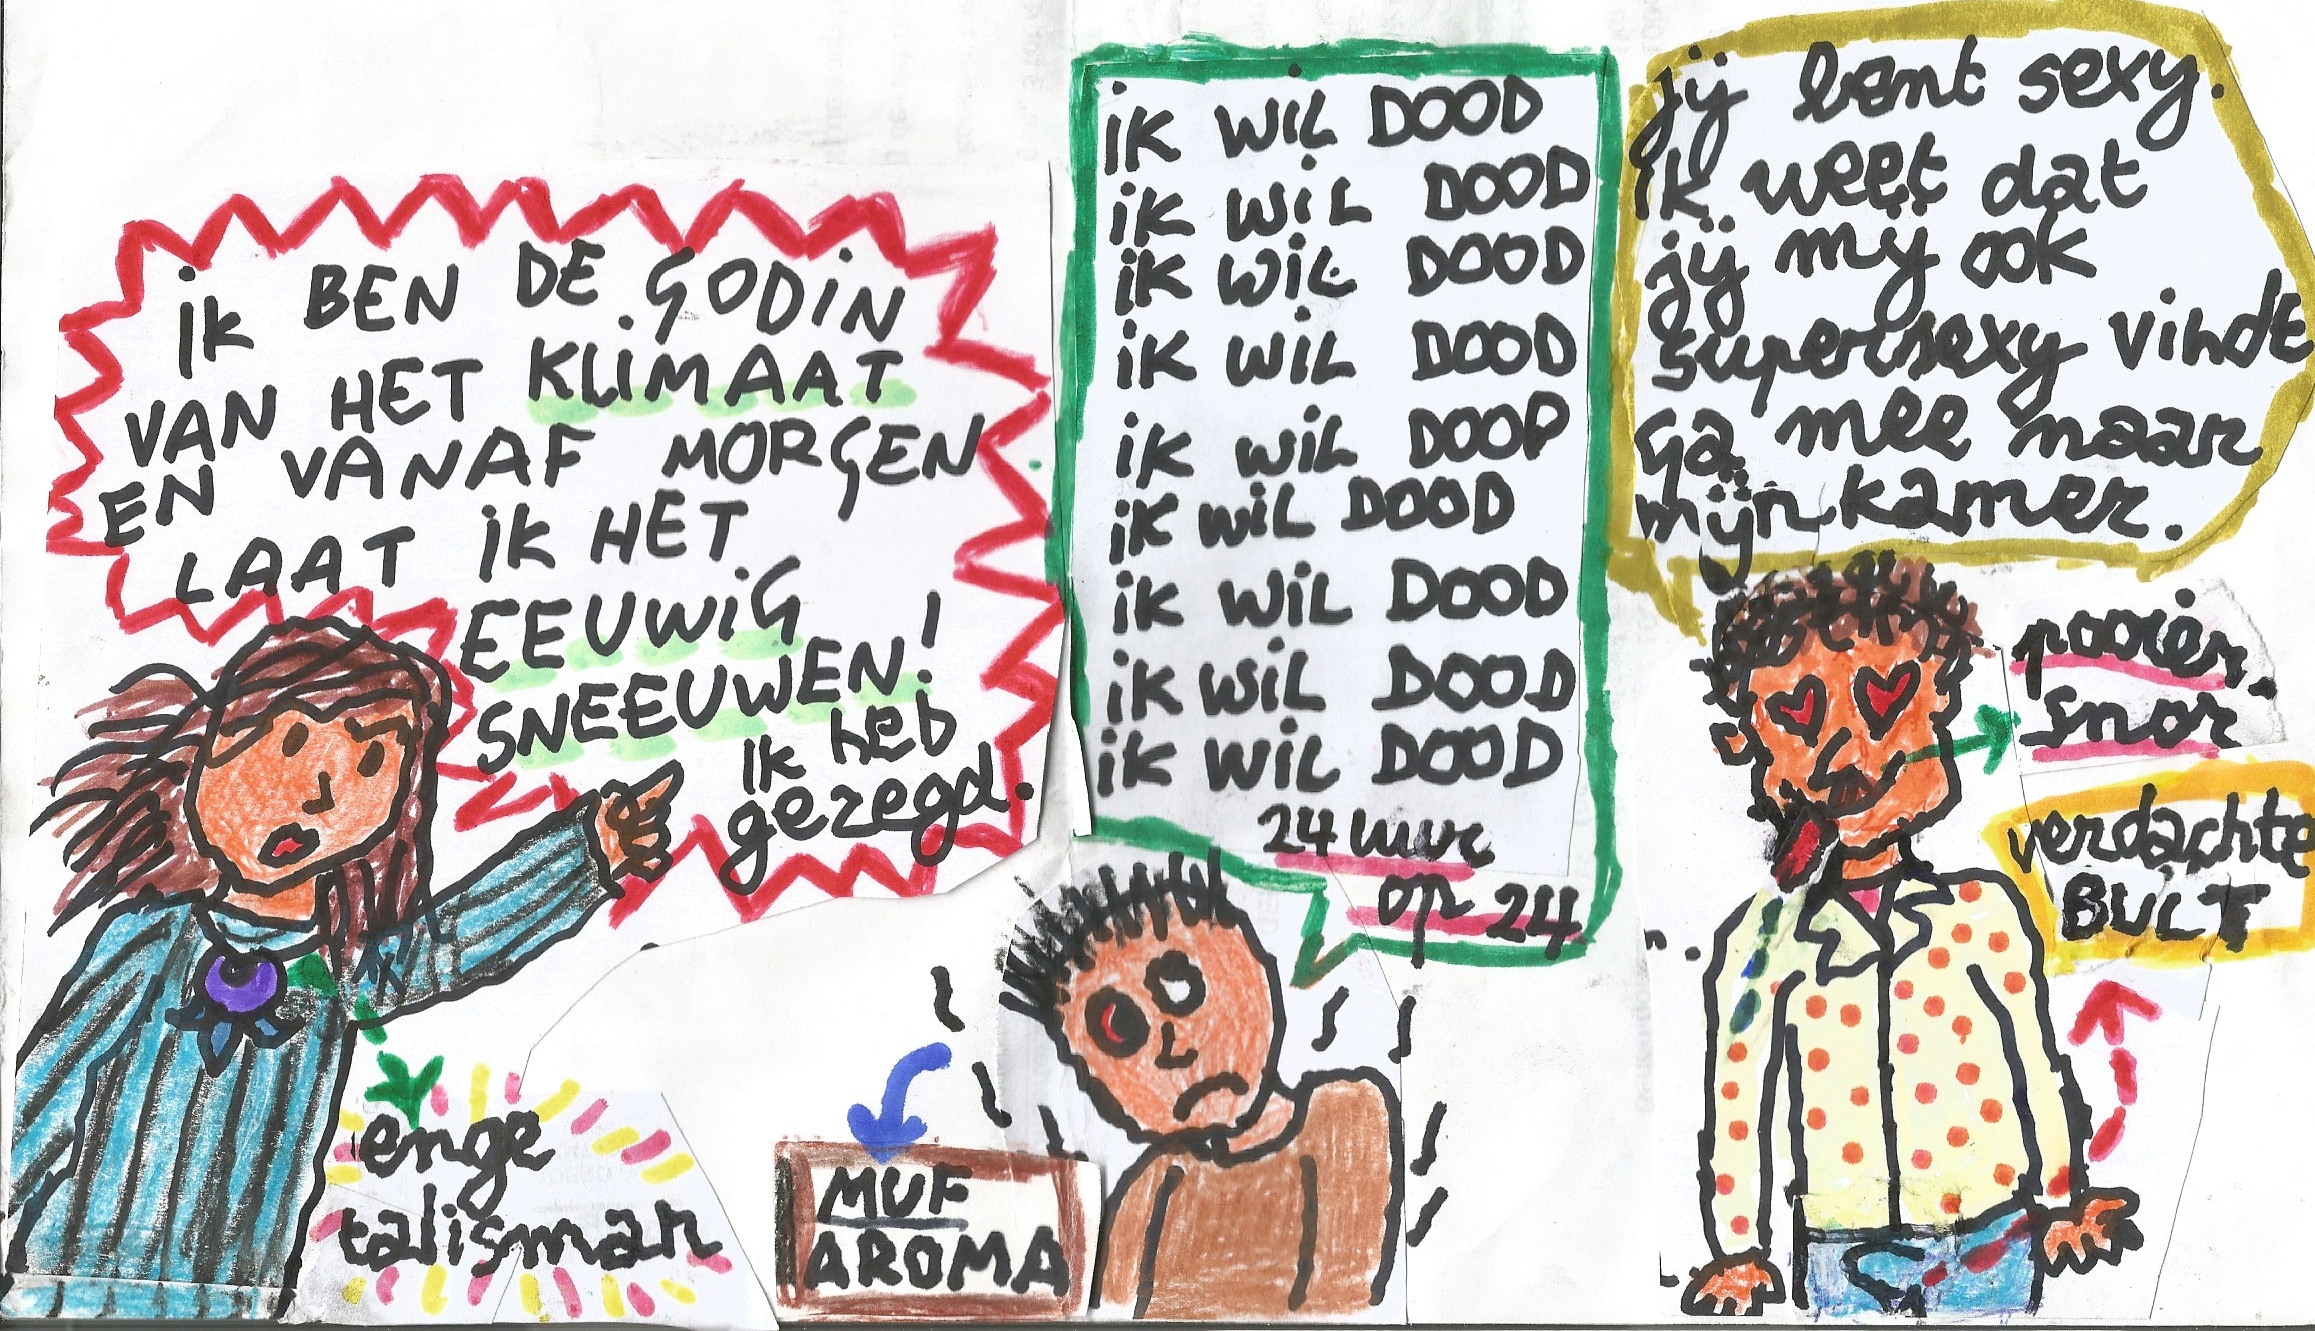 iK BEN DE GODiN
VAN HET KLiMAAT
EN VANAF MORGEN
LAAT iK HET
EEUWiG
SNEEUWEN!
Ik heb
gezegd.
enge
talisman
iK WiL DOOD
iK WiL DOOD
iK WiL DOOD
iK WiL DOOD
iK WiL DOOD
iK WiL DOOD
iK WiL DOOD
iK WiL DOOD
iK WiL DOOD
24 uur
op 24
MUF
AROMA
Jij bent sexy.
Ik weet dat
jij mij ook
supersexy vindt
Ga mee naar
mijn kamer.
pooier-
snor
verdachte
BULT